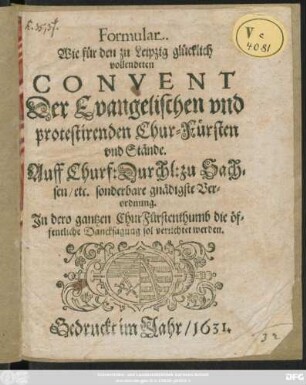 Formular.
Wie für den zu Leipzig glücklich
vollendeten
CONVENT
Der Evangelischen vnd
protestirenden Chur-Fürsten
vnd Stände.
Auff Churf: Durchl: zu Sach-
sen/ etc. sonderbare gnädigste Ver-
ordnung.
In dero gantzen ChurFürstenthumb die öf-
fentliche Dancksagung sol verrichtet werden.
Gedruckt im Jahr/ 1631.
V c
4081